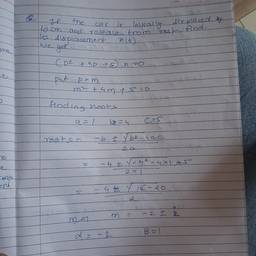 Q. If the car is initially displaced by
10 cm and release from rest find
its displacement x(t)
we get
(D² + 4D + 5) x = 0
put D = m
m² + 4m + 5 = 0
finding roots
a = 1 b = 4 c = 5
roots = -b ± √b² - 4ac
2a
= -4 ± √4² - 4×1×5
2×1
= -4 ± √16 - 20
2
m = -2 ± i
α = -2 β = 1